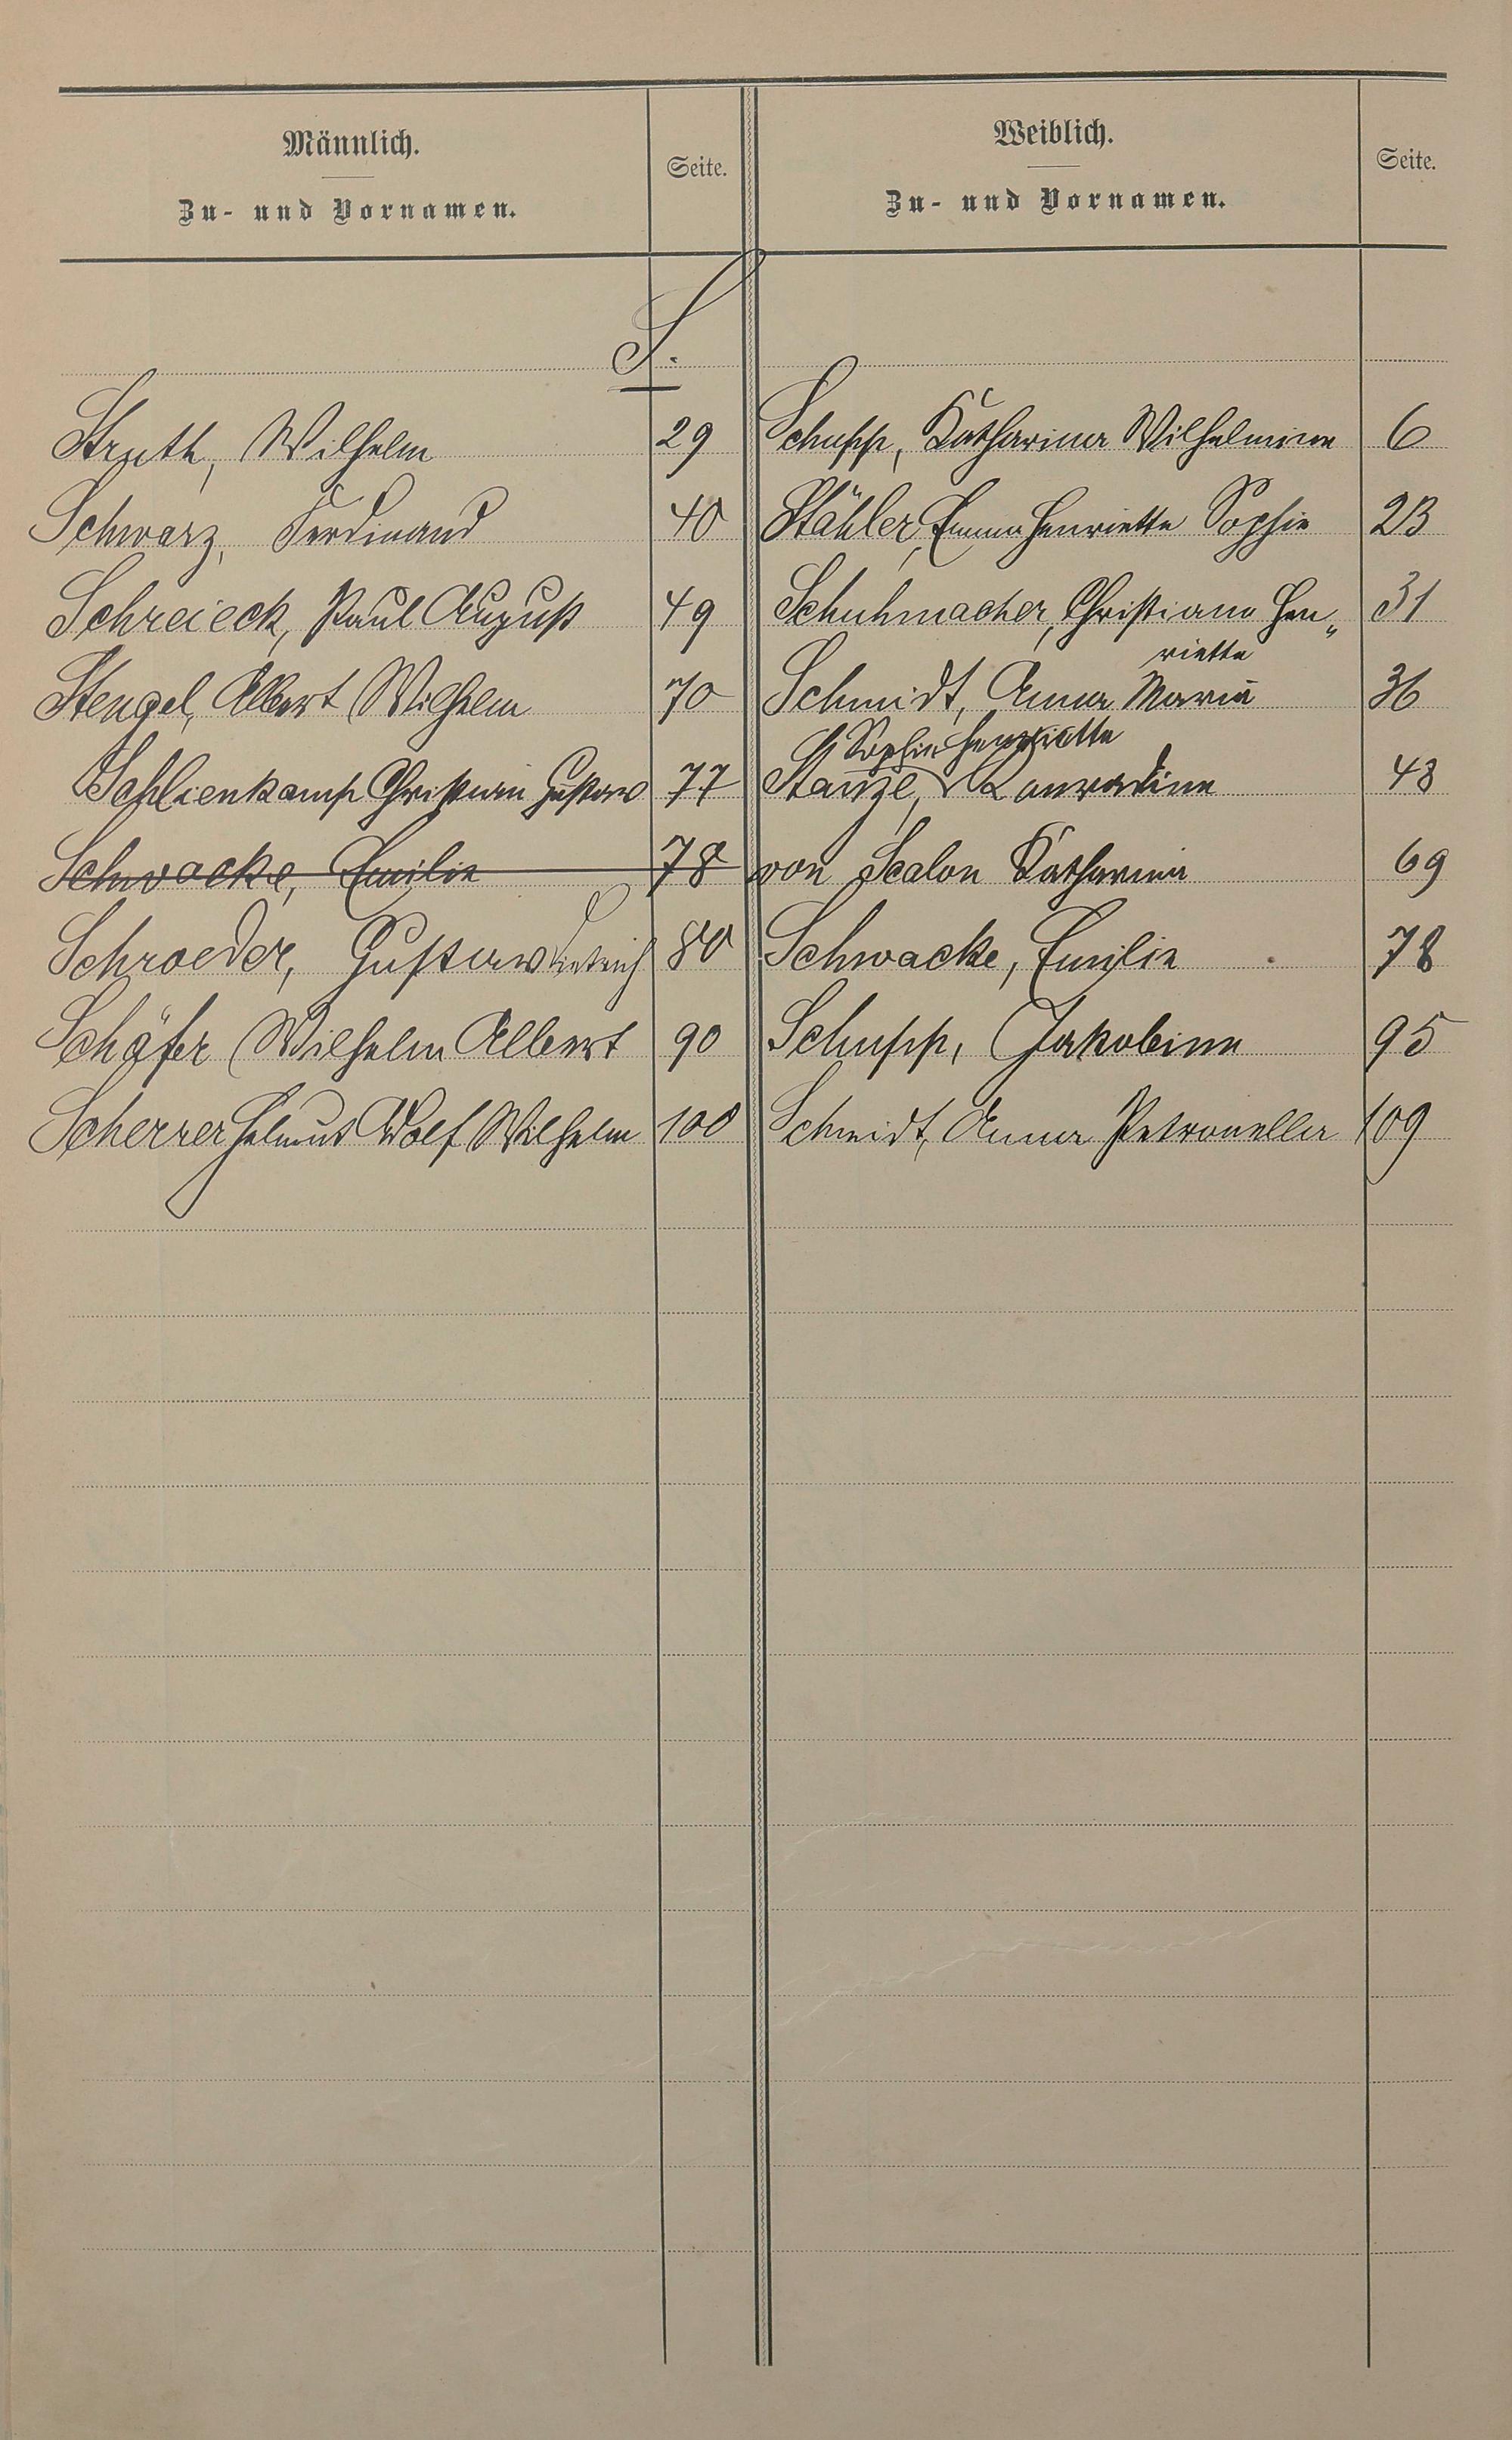 Männlich.
Zu- und Vornamen.
Seite.
Weiblich.
Zu- und Vornamen.
Seite.
S.
Struth, Wilhelm 29
Schwarz, Ferdinand 40
Schreieck, Paul August 49
Stengel, Albert Wilhelm 70
Schlienkamp Christian Gustav 77
Schwacke, Emilie 78
Schroeder, Gustav Dietrich 80
Schäfer Wilhelm Albert 90
Scherrer Helmut Adolf Wilhelm 100
Schupp, Katharina Wilhelmine 6
Stähler, Emma Henriette Sophie 23
Schuhmacher, Christiane Hen„ 31
riette
Schmidt, Anna Maria 36
Sophie Henriette
Stanze, Konradine 43
von Scalon Katharina 69
Schwacke, Emilie 78
Schupp, Jakobine 95
Schmidt, Anna Petronella 109